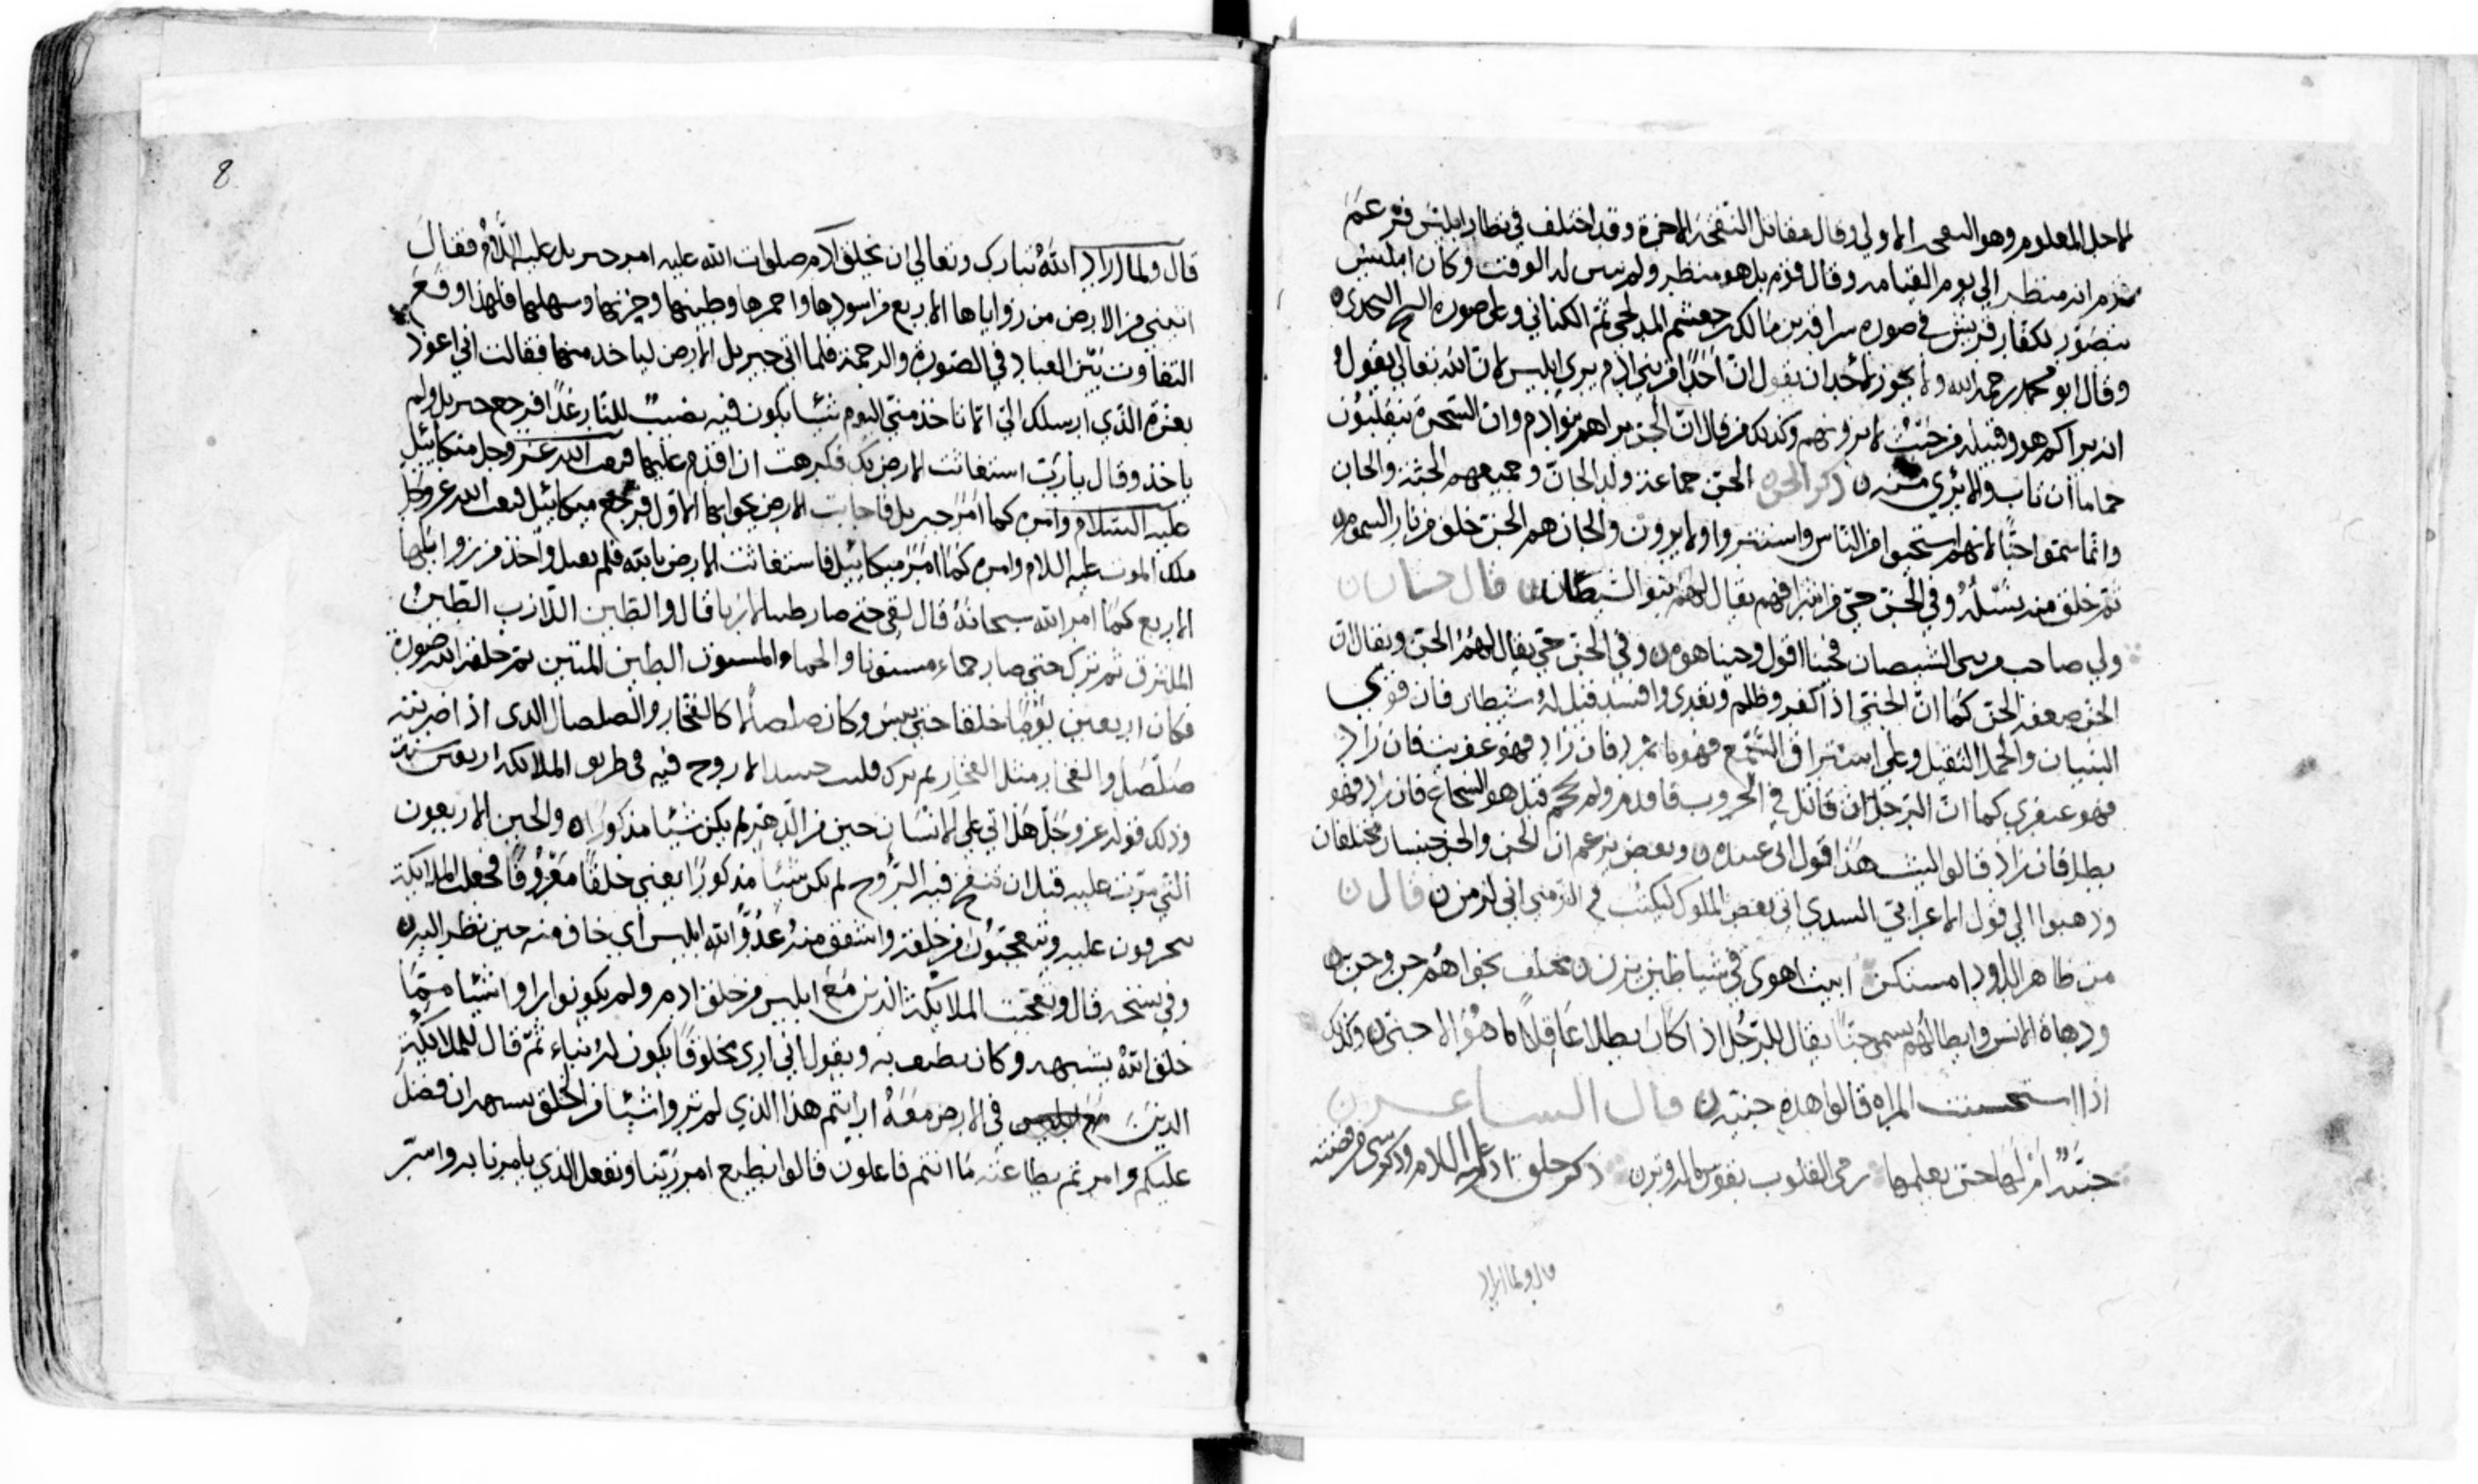 لاجل المعلوم وهو النفخه الاولى وقال مقاتل النفخة الاخرة وقد اختلف في نظار ابليس فزعم
قوم انه منظر الى يوم القيامه وقال قوم بل هو منظر ولم يبين له الوقت وكان ابليس
يتصور لكفار قريش في صوره سراقه بن مالك بن جعشم المدلجي ثم الكناني وعلى صوره الشيخ النجدي
وقال ابو محمد رحمه الله ولا يجوز لأحد ان يقول ان احدا من بني ادم يرى ابليس لان الله تعالى يقول
انه يراكم هو وقبيله من حيث لا ترونهم وكذلك من قال ان الجن يراهم بنو ادم وان السحرة ينقلبون
والا برئ منه ذكر الجن الجن جماعة ولد الجان وجميعهم الجنة والجان
وانما سموا جنا لانهم استجنوا من الناس واستتروا ولا يرون والجان هم الجن خلق من نار السموم
ثم خلق منه نسله وفي الجن حي من اشرافهم يقال لهم بنو الشيطان قال حسان
ولي صاحب من بني الشيصبان فحينا اقول وحينا هوه وفي الجن حي يقال لهم الحن ويقال ان
الحن ضعفه الجن كما ان الجني اذا كفر وظلم وتعدى وافسد قيل له شيطان فان قوي
البنيان والحمل الثقيل وعلى استراق السمع فهو مارد فان زاد فهو عفريت فان زاد
فهو عبقري كما ان الرجل ان قاتل في الحروب فاقدم ولم يحجم قيل هو الشجاع فان زاد فهو
بطل فان زاد قالوا ليث هذا قول ابي عبيده وبعض يزعم ان الحن والجن جنسان مختلفان
وذهبوا الى قول الاعرابي السدي اتى بعض الملوك ليكتب في الزمنى اني لزمن قال
من ظاهر الداء ودا مستكن ابيت اهوي في شياطين ترن مختلف نجواهم جن وحن
ودهاة الانس وابطالهم يسمى جنا يقال للرجل اذا كان بطلا عاقلا ما هو الا جني وكذلك
اذا استحسنت المراه قالوا هذه جنيه قال الشاعر
جنية أم لها جن يعلمها رمي القلوب بقوس ما لها وتر ذكر خلق ادم عليه السلام وذكر شي من قصته
قال ولما اراد
8
قال ولما اراد الله تبارك وتعالى ان يخلق ادم صلوات الله عليه امر جبريل عليه السلام فقال
ائتني من الارض من زواياها الاربع من اسودها واحمرها وطيبها وحزنها وسهلها فلهذا وقع
التفاوت بين العباد في الصورة والرحمة فلما اتى جبريل الارض لياخذ منها فقالت اني اعوذ
بعزة الذي ارسلك الي الا تاخذ مني اليوم شيئا يكون فيه نصيب للنار غدا فرجع جبريل ولم
ياخذ وقال يا رب استعاذت الارض بك فكرهت ان اقدم عليها فبعث الله عز وجل ميكائيل
عليه السلام وامره كما امر جبريل فاجابت الارض بجوابها الاول فرجع ميكائيل فبعث الله عز وجل
ملك الموت عليه السلام وامره كما امر ميكائيل فاستعاذت الارض بالله فلم يقبل واخذ من زواياها
الاربع كما امر الله سبحانه قال حتى صار طينا لازبا قال والطين اللازب الطين
الملتزق ثم ترك حتى صار حماء مسنونا والحماء المسنون الطين المنتن ثم خلق الله صورة
فكان اربعين يوما خلقا حتى يبس وكان صلصالا كالفخار والصلصال الذي اذا ضربته
صلصل والفخار مثل الفخار لم جسدا لا روح فيه في طريق الملائكه اربعين سنة
وذلك قوله عز وجل هل اتى على الانسان حين من الدهر لم يكن شيئا مذكورا والحين الاربعون
التي مرت عليه قبل ان تنفخ فيه الروح لم يكن شيئا مذكورا يعني خلقا معروفا فجعلت الملائكة
يمرون عليه ويتعجبون من خلقه واشفق منه عدو الله ابليس اي خاف منه حين نظر اليه
وفي نسخه قال وتعجبت الملائكة الذين مع ابليس من خلق ادم ولم يكونوا راوا شيئا مما
خلق الله يشبهه وكان يطيف به ويقول اني ارى مخلوقا يكون له نباء ثم قال للملائكة
الذين مع ابليس في الارض معه ارايتم هذا الذي لم تروا شيئا من الخلق يشبهه ان فضل
عليكم وامرتم بطاعته ما انتم فاعلون قالوا نطيع امر ربنا ونفعل الذي يامرنا به واسر